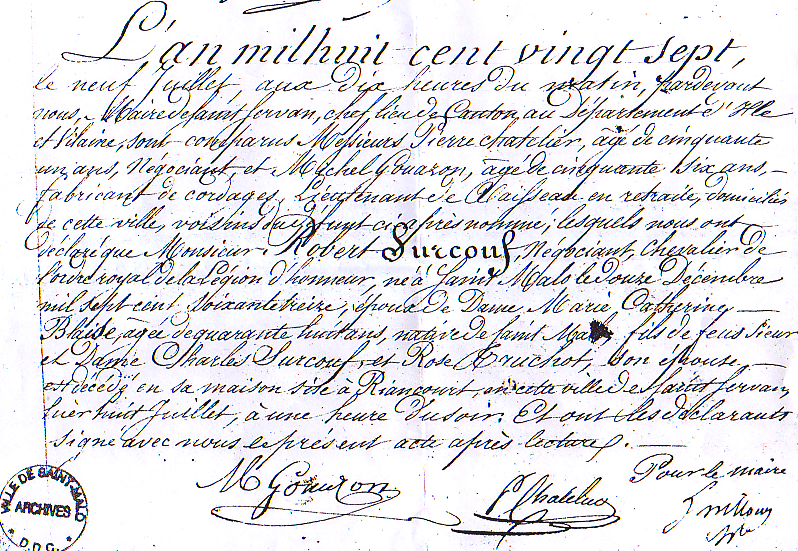 L'an mil huit cent vingt sept,
le neuf Juillet, aux dix heures du matin, pardevant
nous, Maire de Saint Servan, chef lieu de Canton, au Département d'Ille
et Vilaine, sont comparus Messieurs Pierre Chatelier, âgé de cinquante
un ans, Négociant, et Michel Gouazon, âgé de cinquante six ans,
fabricant de cordages, Lieutenant de Vaisseau en retraite, domiciliés
de cette ville, voisins du défunt ci après nommé, lesquels nous ont
déclaré que Monsieur Robert Surcouf, Négociant, Chevalier de
l'ordre royal de la Légion d'honneur, né à Saint Malo le douze Décembre
mil sept cent soixante treize, époux de Dame Marie Catherine
Blaise, agée de quarante huit ans, native de Saint Malo, fils de feus Sieur
et Dame Charles Surcouf, et Rose Truchot, son epouse
est décédé en sa maison sise à Riancourt, en cette ville de Saint Servan,
hier huit Juillet, à une heure du soir. Et ont les déclarants
signé avec nous le présent acte après lecture.
M Gouazon
P Chatelier
Pour le maire
VILLE DE SAINT-MALO
ARCHIVES
* D.D.G. *